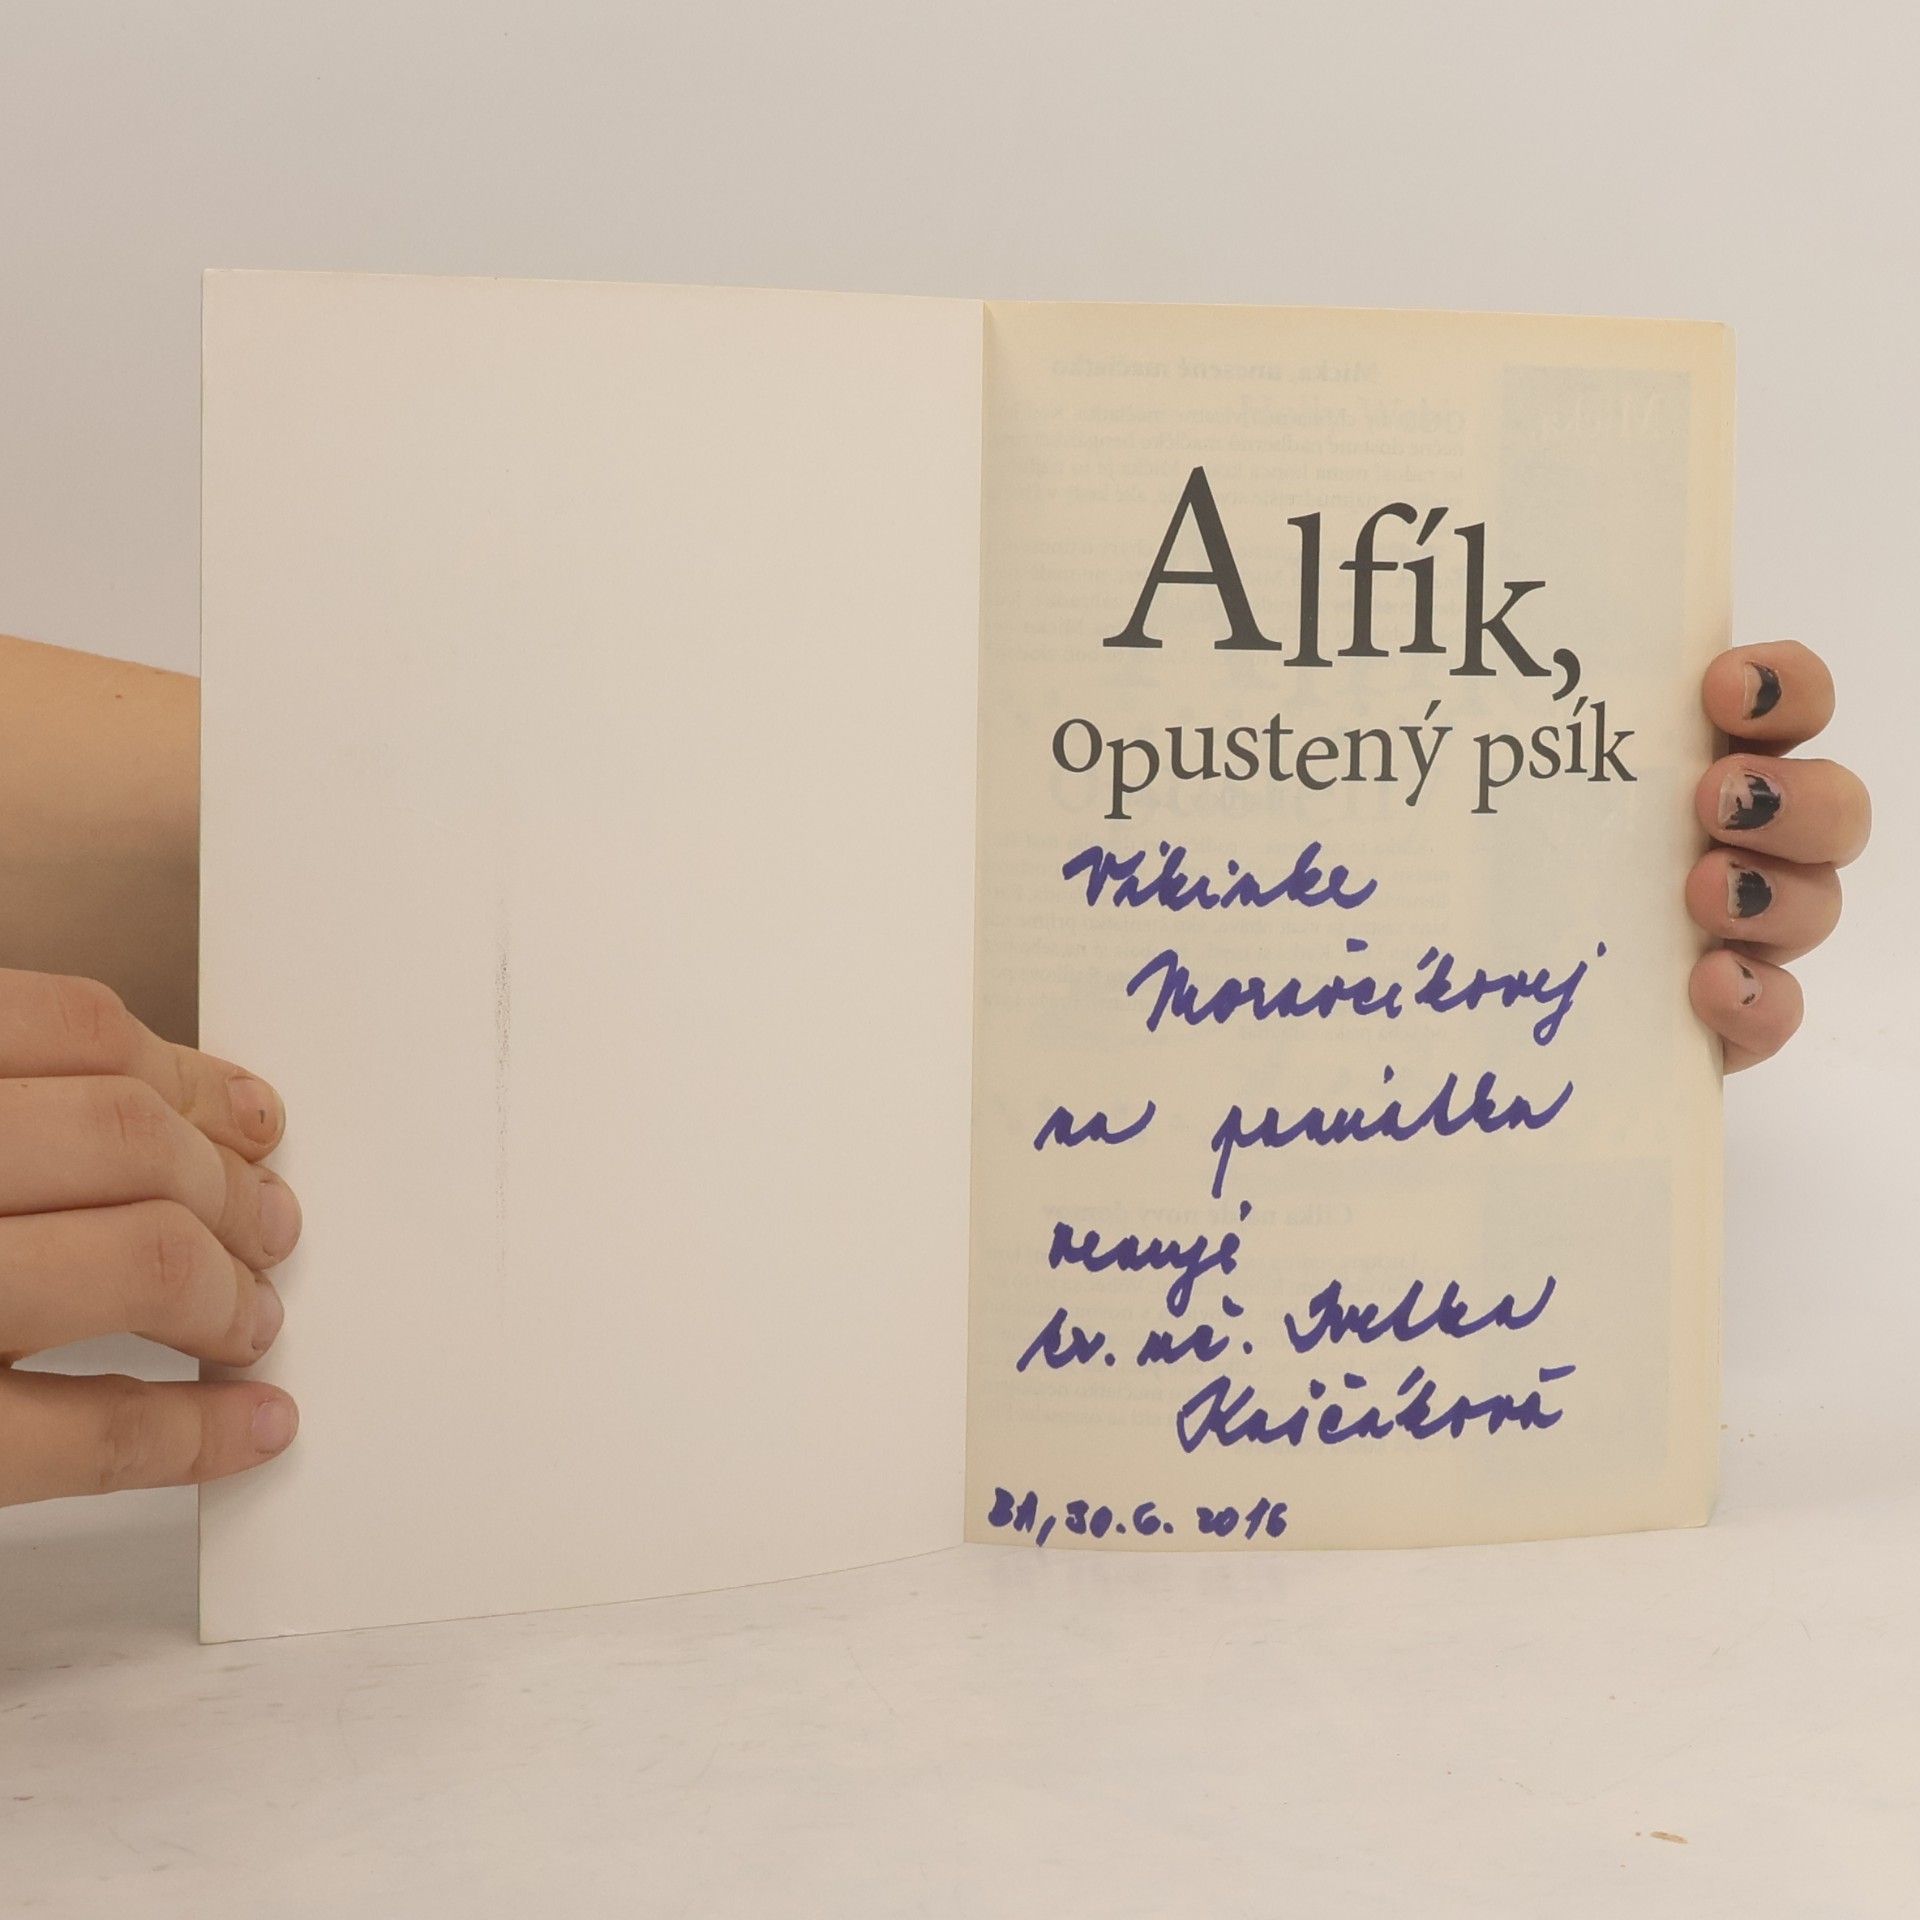 Alfík,
opustený psík
Vikinke
Moravčíkovej
na pamiatku
venuje
tr. uč. Ivetka
Kaščáková
BA, 30.6. 2016